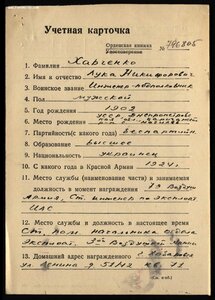 Учетная карточка
Орденская книжка
Удостоверение
№
1. Фамилия Харченко
2. Имя и отчество Лука Никифорович
3. Воинское звание Инженер-подполковник
4. Пол мужской
5. Год рождения 1903
6. Место рождения УССР, Днепропетровс
7. Партийность (с какого года) беспартийн.
8. Образование Высшее
9. Национальность украинец
10. С какого года в Красной Армии 1924,
11. Место службы (наименование части) и занимаемая
должность в момент награждения 13 Воздуш
Армия, Ст. инженер по эксплоат
ИАС
12. Место службы и должность в настоящее время
Ст. пом. начальника отдела
эксплоат. Воздушной Армии
13. Домашний адрес награжденного г. Хабаровск
ул. Ленина кв. 71